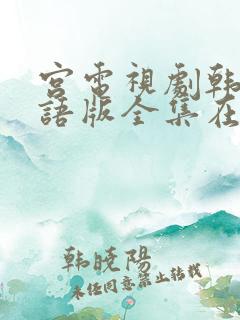 宫電視劇韩
語版全集在
韩晓陽
未经同意禁止转载